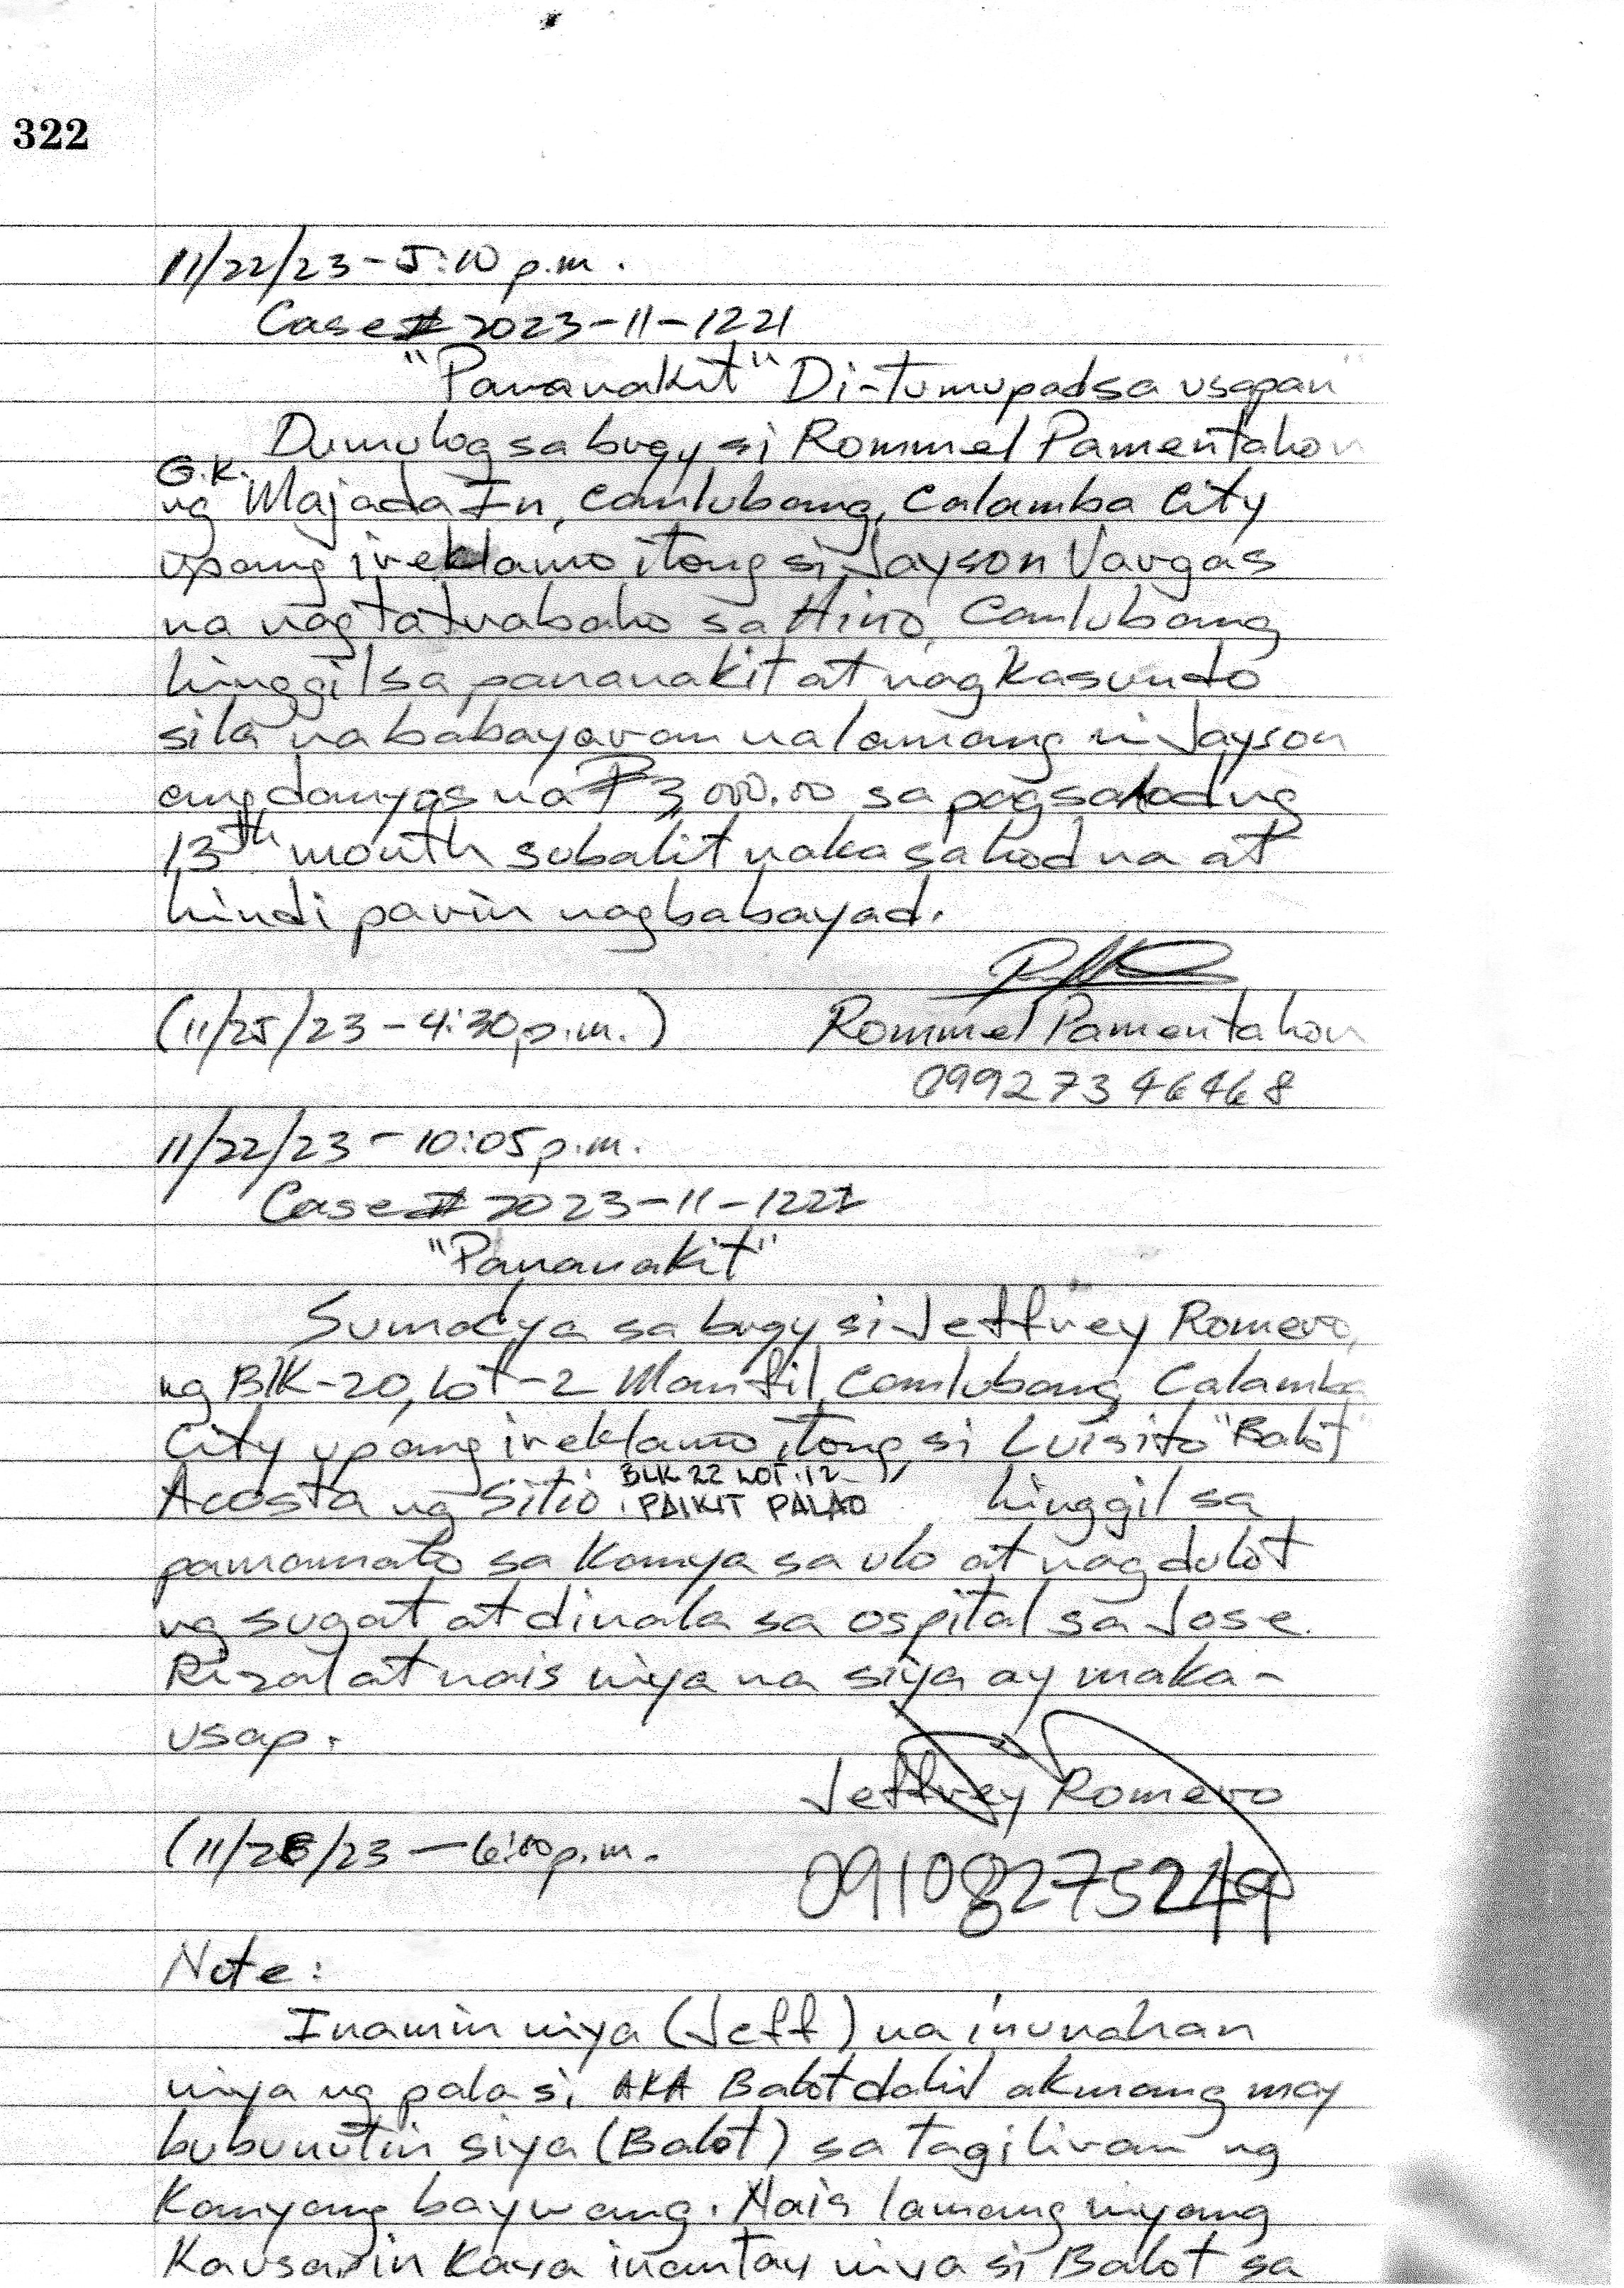 322
11/22/23 - 5:10 p.m.
Case # 2023-11-1221
"Pananakit" Di-tumupad sa usapan"
Dumulog sa brgy si Rommel Pamentahon
G.K.
ng Majada In, Canlubang, Calamba City
upang ireklamo itong si Jayson Vargas
na nagtatrabaho sa Hino, Canlubang
hinggil sa pananakit at nagkasundo
sila na babayaran na lamang ni Jayson
ang danyos na ₱3,000.00 sa pagsahod ng
13th month subalit nakasahod na at
hindi pa rin nagbabayad.
(11/25/23 - 4:30 p.m.) Rommel Pamentahon
09927346468
11/22/23 - 10:05 p.m.
Case # 2023-11-1222
"Pananakit"
Sumadya sa brgy si Jeffrey Romero,
ng Blk-20, Lot-2 Manfil, Canlubang, Calamba
City upang ireklamo itong si Luisito "Balot"
BLK 22 LOT. 12
Acosta ng Sitio PAIKIT PALAO hinggil sa
pamamato sa kanya sa ulo at nagdulot
ng sugat at dinala sa ospital sa Jose
Rizal at nais niya na siya ay maka-
usap.
Jeffrey Romero
(11/28/23 - 6:00 p.m. 09108275249
Note:
Inamin niya (Jeff) na inunahan
niya ng pala si AKA Balot dahil akmang may
bubunutin siya (Balot) sa tagiliran ng
kanyang baywang. Nais lamang niyang
kausapin kaya inantay niya si Balot sa